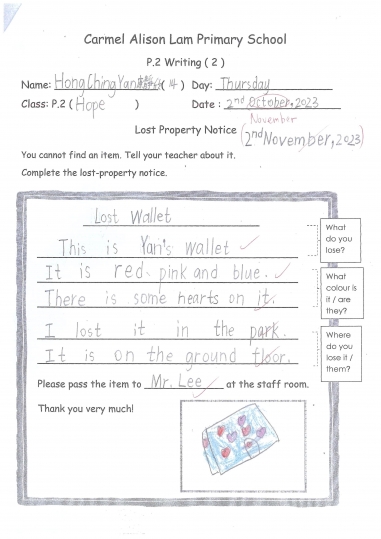 Carmel Alison Lam Primary School
P.2 Writing ( 2 )
Name: Hong Ching Yan ( 14 ) Day: Thursday
Class: P.2 ( Hope ) Date : 2nd October, 2023
November
Lost Property Notice (2nd November, 2023)
You cannot find an item. Tell your teacher about it.
Complete the lost-property notice.
Lost Wallet
This is Yan's wallet
It is red, pink and blue.
There is some hearts on it.
I lost it in the park.
It is on the ground floor.
What do you lose?
What colour is it / are they?
Where do you lose it / them?
Please pass the item to Mr. Lee at the staff room.
Thank you very much!